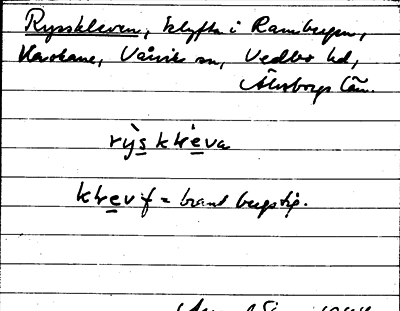 Rysskleven, klyfta i Rambergen,
Harakane, Vårvik sn, Vedbo hd,
Älvsborgs län.
rỳs klreva
klrev f = brant bergstig.